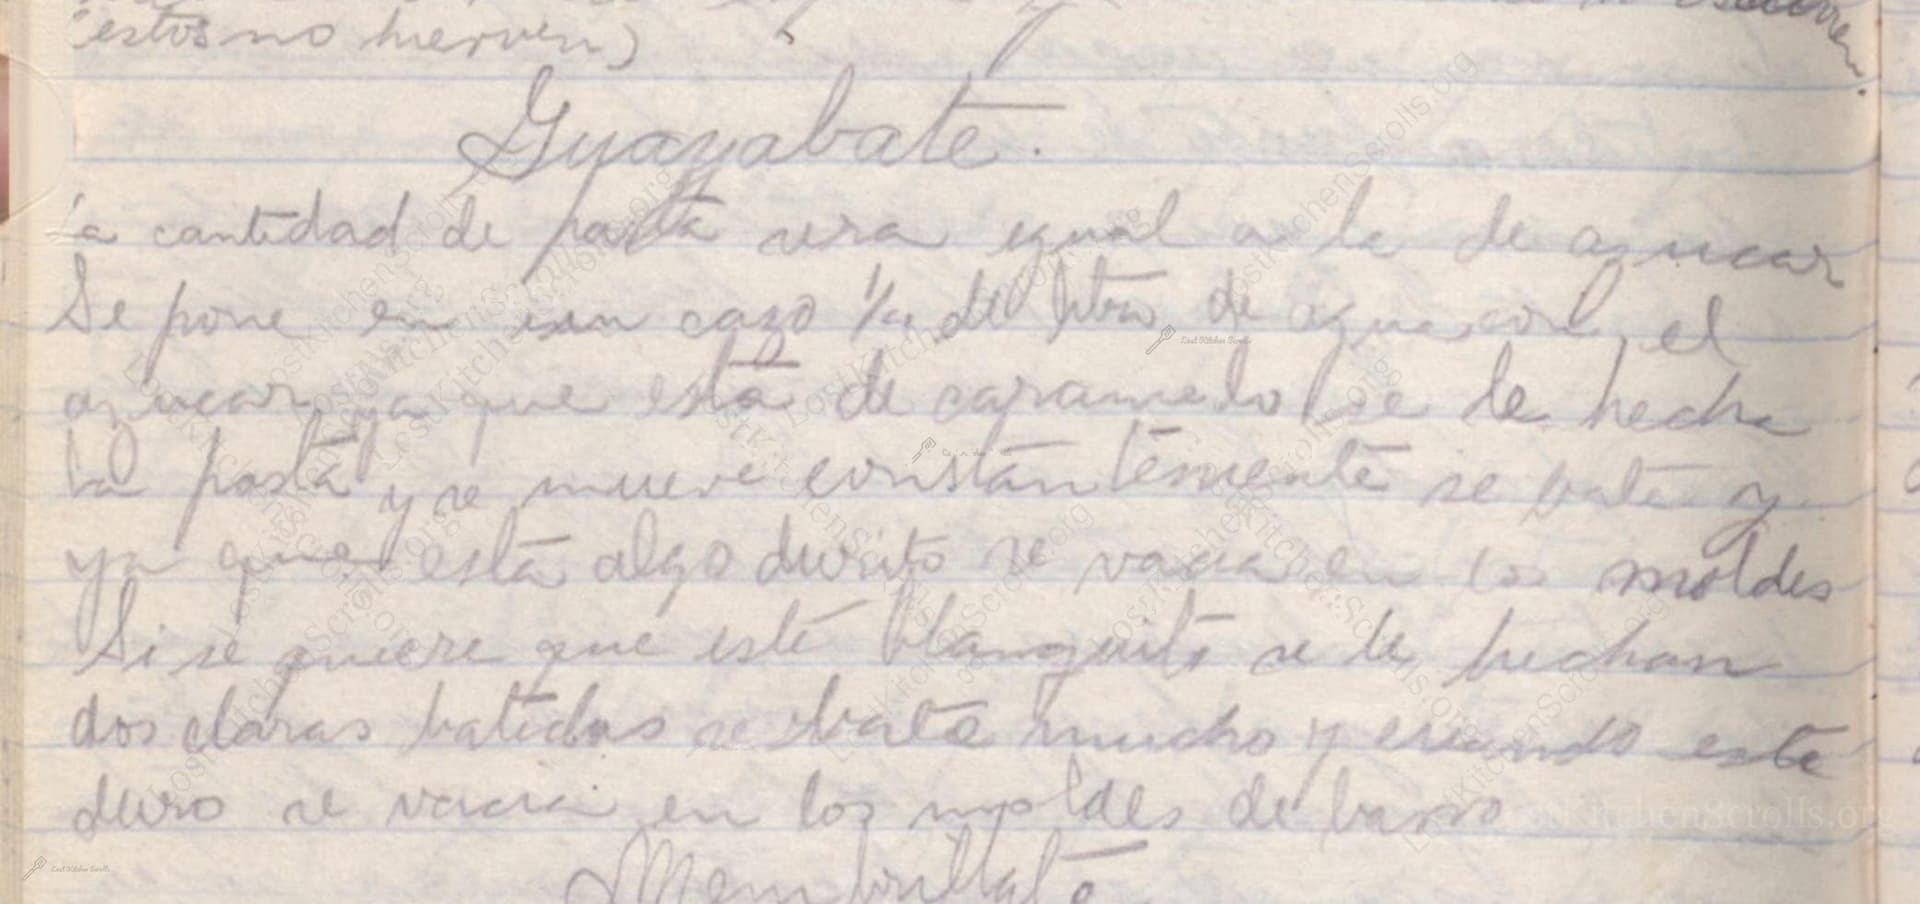 (estos no hierven)
Guayabate.
la cantidad de pasta sera egual a la de azucar
Se pone en un cazo 1/4 de litro de agua con el
azucar, ya que está de caramelo se le hecha
la pasta y se mueve constantemente se bate y
ya que está algo durito se vacia en los moldes
Si se quiere que esté blanquito se le hechan
dos claras batidas se bate mucho y cuando este
duro se vacia en los moldes de barro
Membrillate
LostKitchenScrolls.org
Lost Kitchen Scrolls